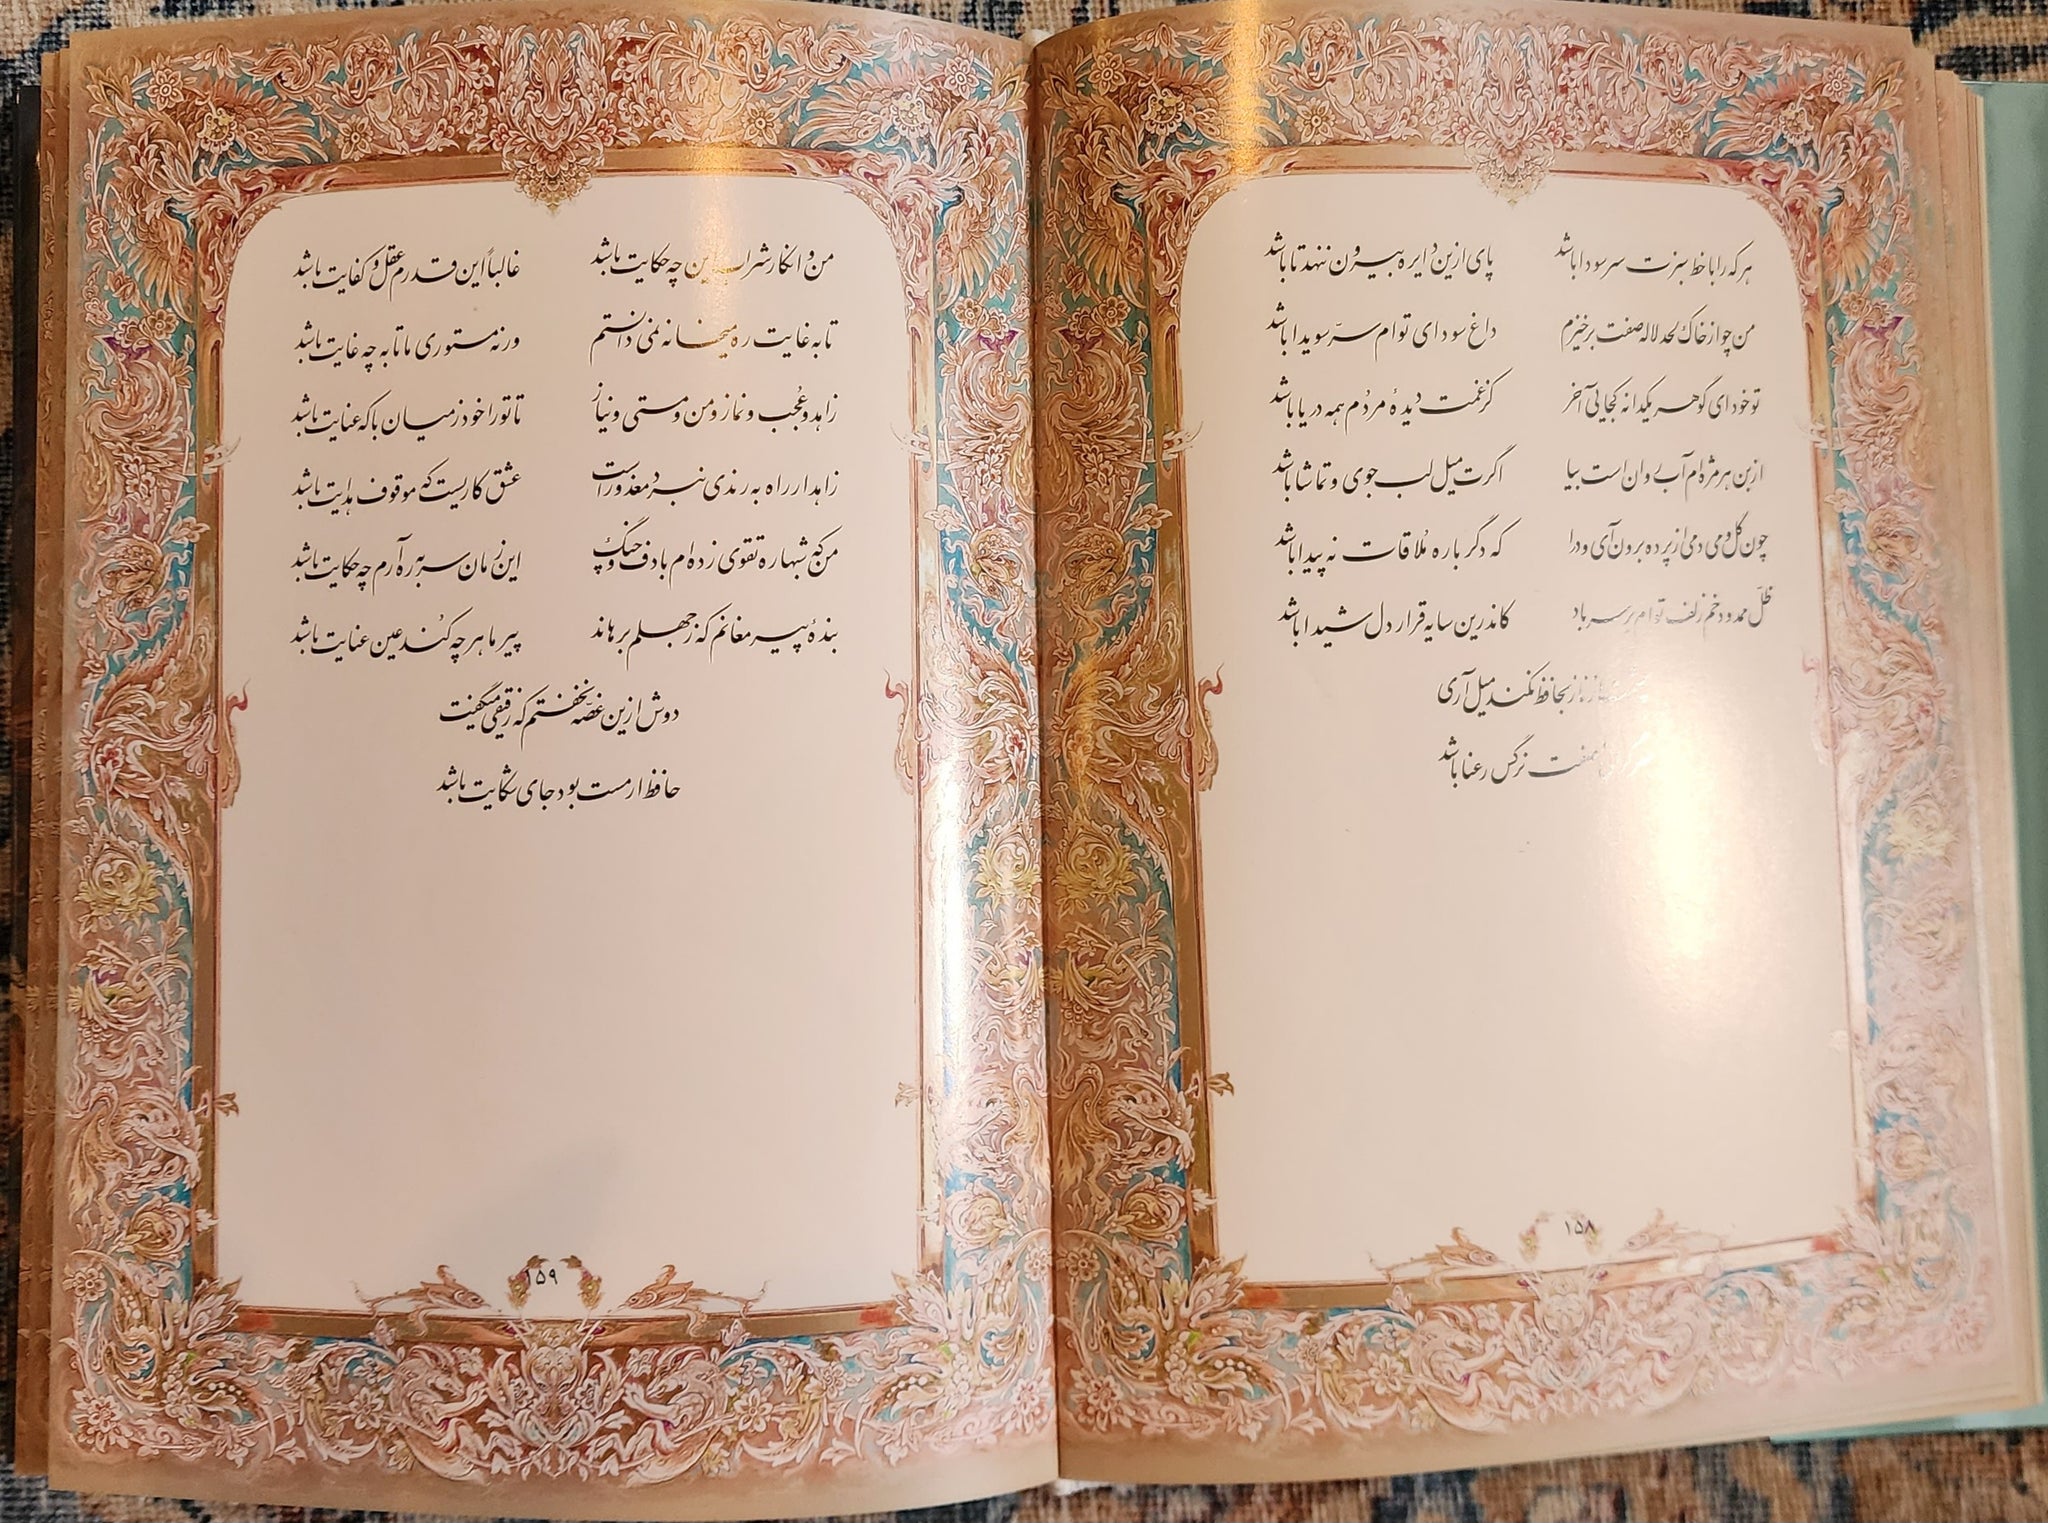 هر که را با خط سبزت سر سودا باشد
پای ازین دایره بیرون ننهد تا باشد
من چو از خاک لحد لاله صفت برخیزم
داغ سودای توام سرّ سویدا باشد
تو خود ای گوهر یکدانه کجایی آخر
کز غمت دیدهٔ مردم همه دریا باشد
از بن هر مژه‌ام آب روان است بیا
اگرت میل لب جوی و تماشا باشد
چون گل و می دمی از پرده برون آی و درآ
که دگر باره ملاقات نه پیدا باشد
ظلّ ممدود خم زلف توام بر سر باد
کاندرین سایه قرار دل شیدا باشد
از ناز بحافظ نکند میل آری
صفت نرگس رعنا باشد
۱۵۸
من و انکار شراب این چه حکایت باشد
غالباً این قدرم عقل و کفایت باشد
تا به غایت ره میخانه نمی دانستم
ورنه مستوری ما تا به چه غایت باشد
زاهد و عُجب و نماز و من و مستی و نیاز
تا تو را خود ز میان با که عنایت باشد
زاهد ار راه به رندی نبرد معذور است
عشق کاریست که موقوف هدایت باشد
من که شبها ره تقوی زده‌ام با دف و چنگ
این زمان سر به ره آرم چه حکایت باشد
بندهٔ پیر مغانم که ز جهلم برهاند
پیر ما هر چه کند عین عنایت باشد
دوش ازین غصّه نخفتم که رفیقی میگفت
حافظ ار مست بود جای شکایت باشد
۱۵۹